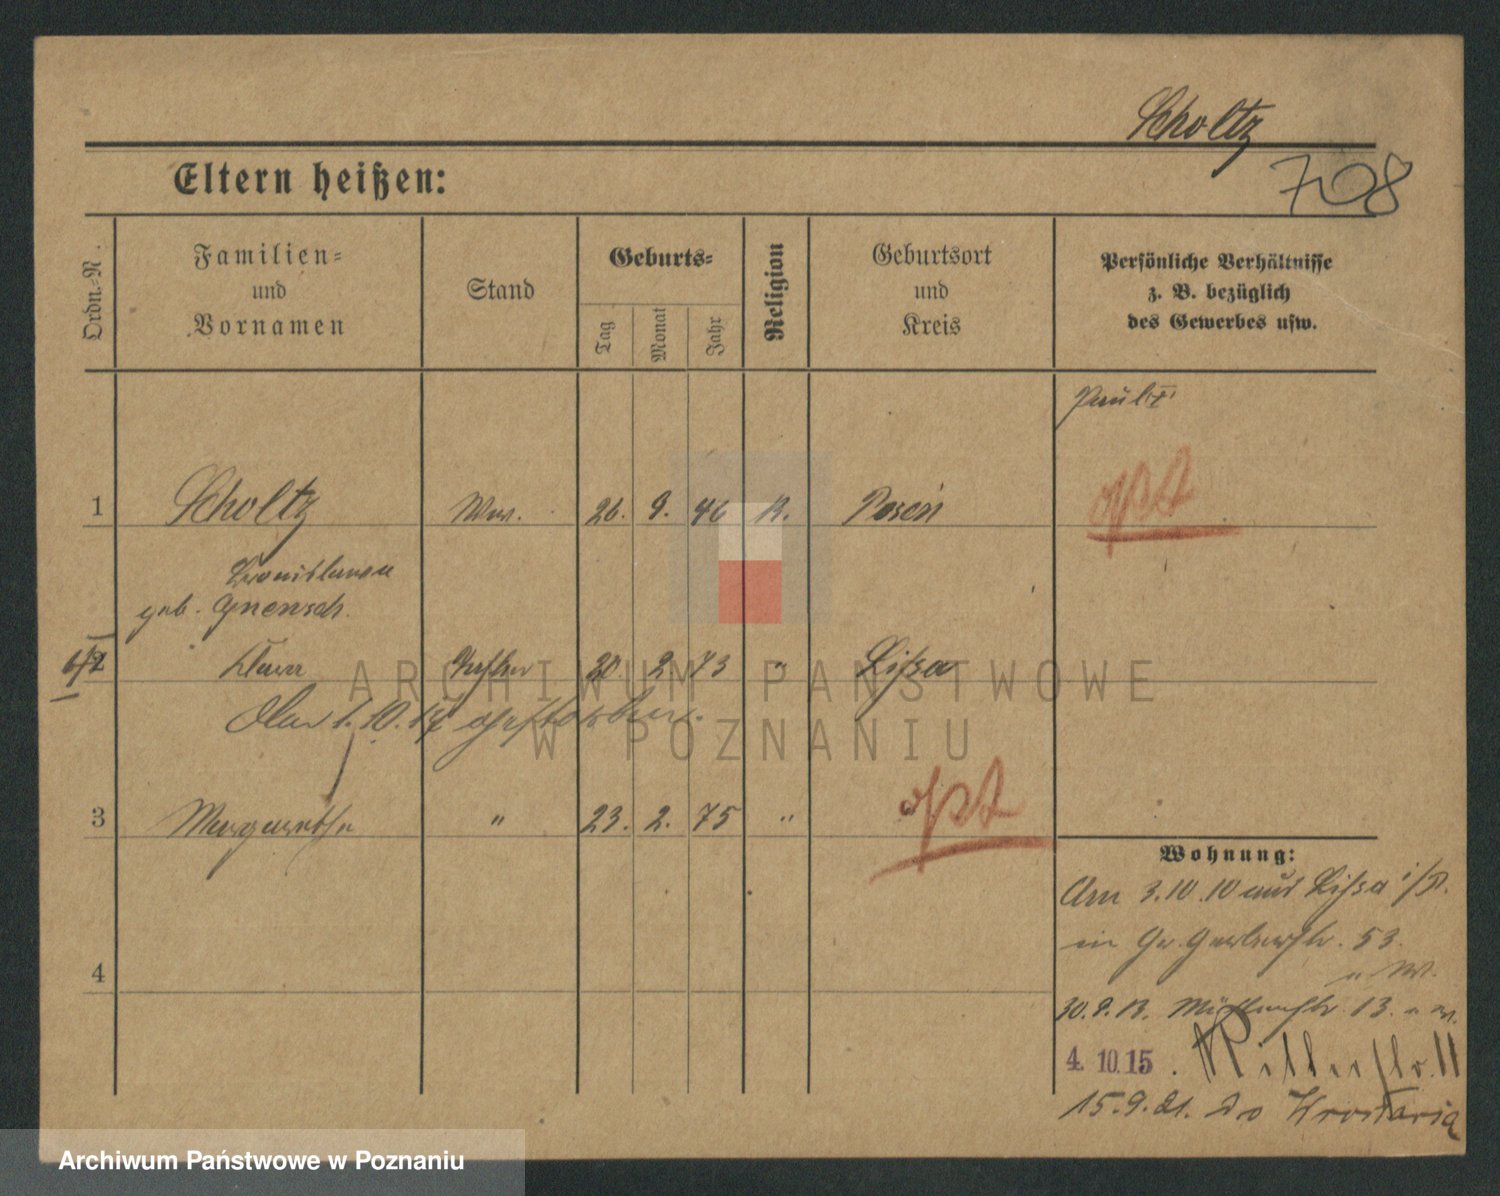 Scholtz
708
Eltern heißen:
Ordn.-N.
Familien=
und
Vornamen
Stand
Geburts=
Tag
Monat
Jahr
Religion
Geburtsort
und
Kreis
Persönliche Verhältnisse
z. B. bezüglich
des Gewerbes usw.
1
Scholtz
Ww.
26. 9. 46
K.
Posen
opt
geb.
2
Clara
20. 2. 73
"
Lissa
1.10.
3
Margarethe
"
23. 2. 75
"
opt
4
Wohnung:
Am 3.10.10 aus Lissa i/P.
in Gr. Gerberstr. 53.
30.9.13. 13.
4. 10. 15. Ritterstr. 11
15.9.21. Do Krotoszyna
ARCHIWUM PAŃSTWOWE
W POZNANIU
Archiwum Państwowe w Poznaniu